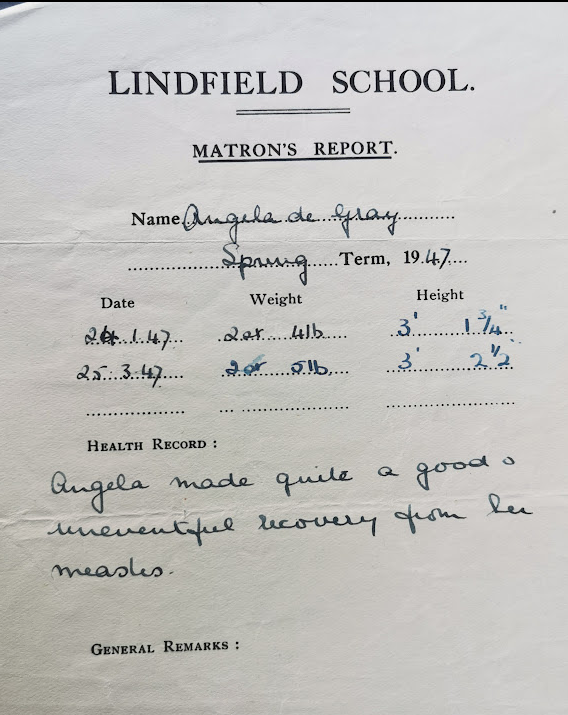 LINDFIELD SCHOOL.
MATRON'S REPORT.
Name Angela de Gray
Spring Term, 1947.
Date Weight Height
24.1.47 2 st 4lb 3' 1 3/4"
25.3.47 2 st 5lb. 3' 2 1/2"
HEALTH RECORD :
Angela made quite a good &
uneventful recovery from her
measles.
GENERAL REMARKS :